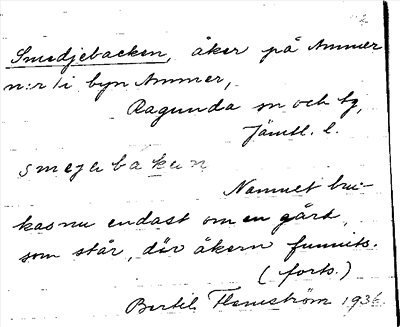 Smedjebacken, åker på Ammer
n:r 1 i byn Ammer,
Ragunda sn och tg,
Jämtl. l.
smejabakan
Namnet bru-
kas nu endast om en gård,
som står, där åkern funnits.
(forts.)
Bertil Flemström 193